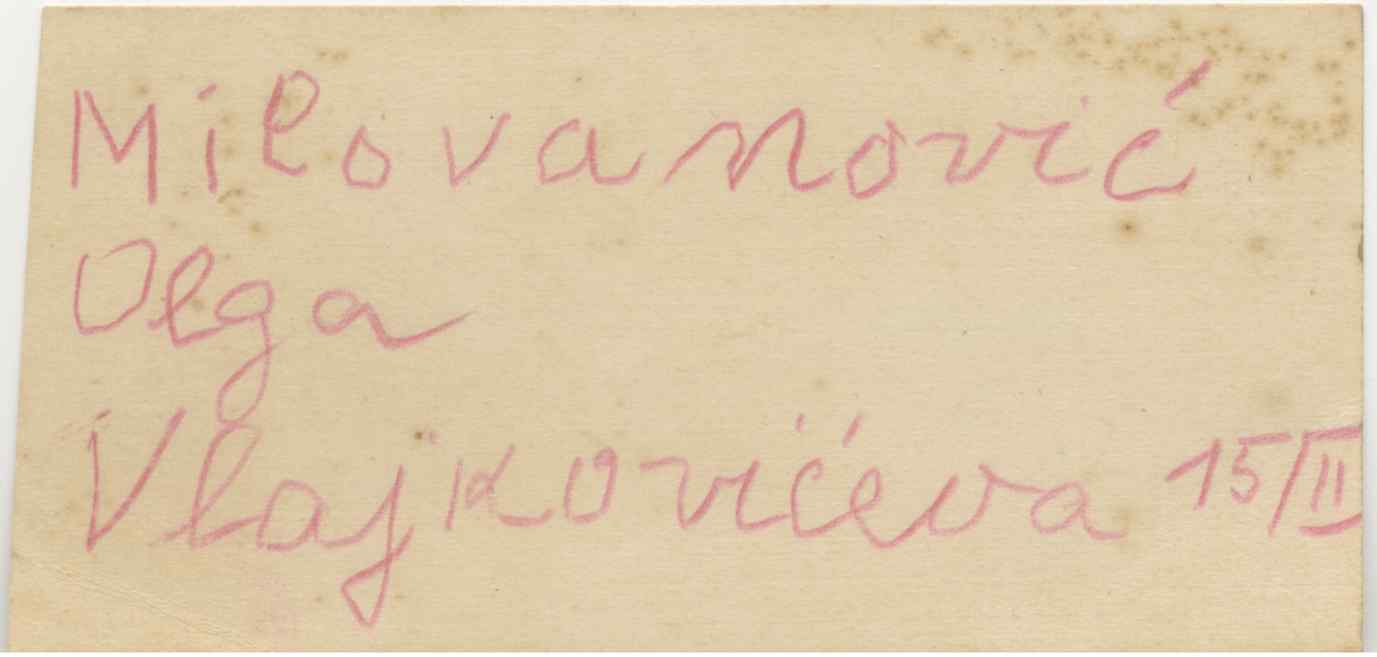 Milovanović
Olga
Vlajkovićeva 15/II